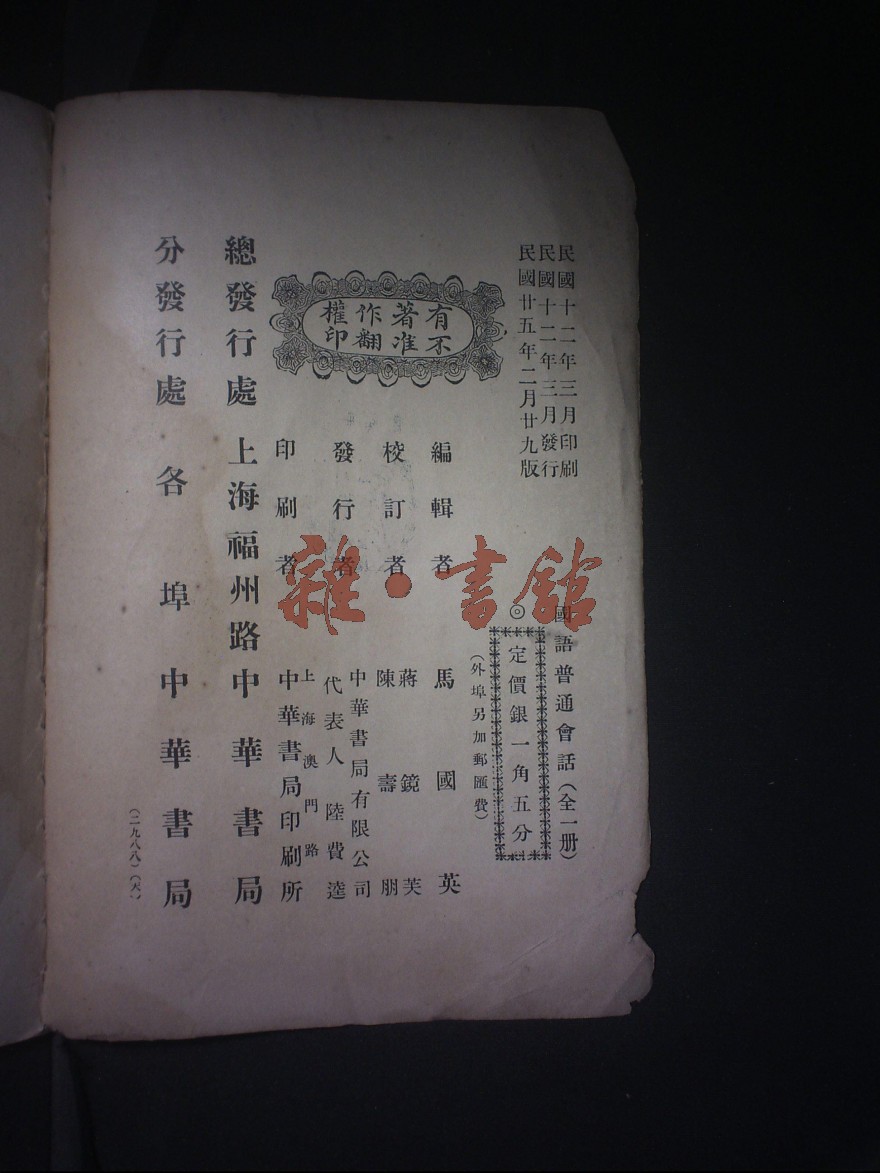 民國十二年三月印刷
民國十二年三月發行
民國廿五年二月廿九版
國語普通會話(全一册)
◎定價銀一角五分
(外埠另加郵匯費)
有著作權
不准翻印
編輯者 馬國英
校訂者 蔣鏡芙
陳壽朋
發行者 中華書局有限公司
代表人 陸費逵
印刷者 上海澳門路
中華書局印刷所
總發行處 上海福州路中華書局
分發行處 各埠中華書局
(二九八八)(天)
雜·書館